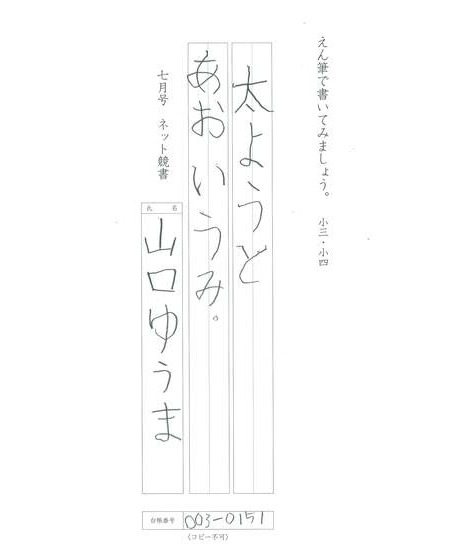 えん筆で書いてみましょう。 小三・小四
太ようと
あおいうみ。
七月号 ネット競書
氏名
山口ゆうま
台帳番号 003-0151
(コピー不可)